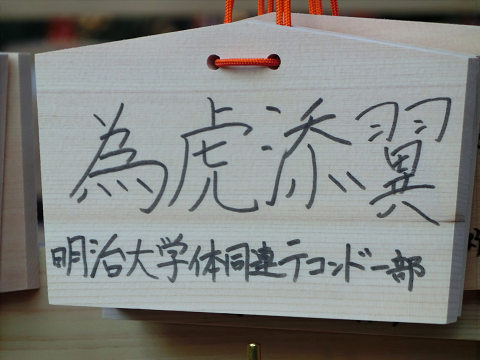 為虎添翼
明治大学体同連テコンドー部